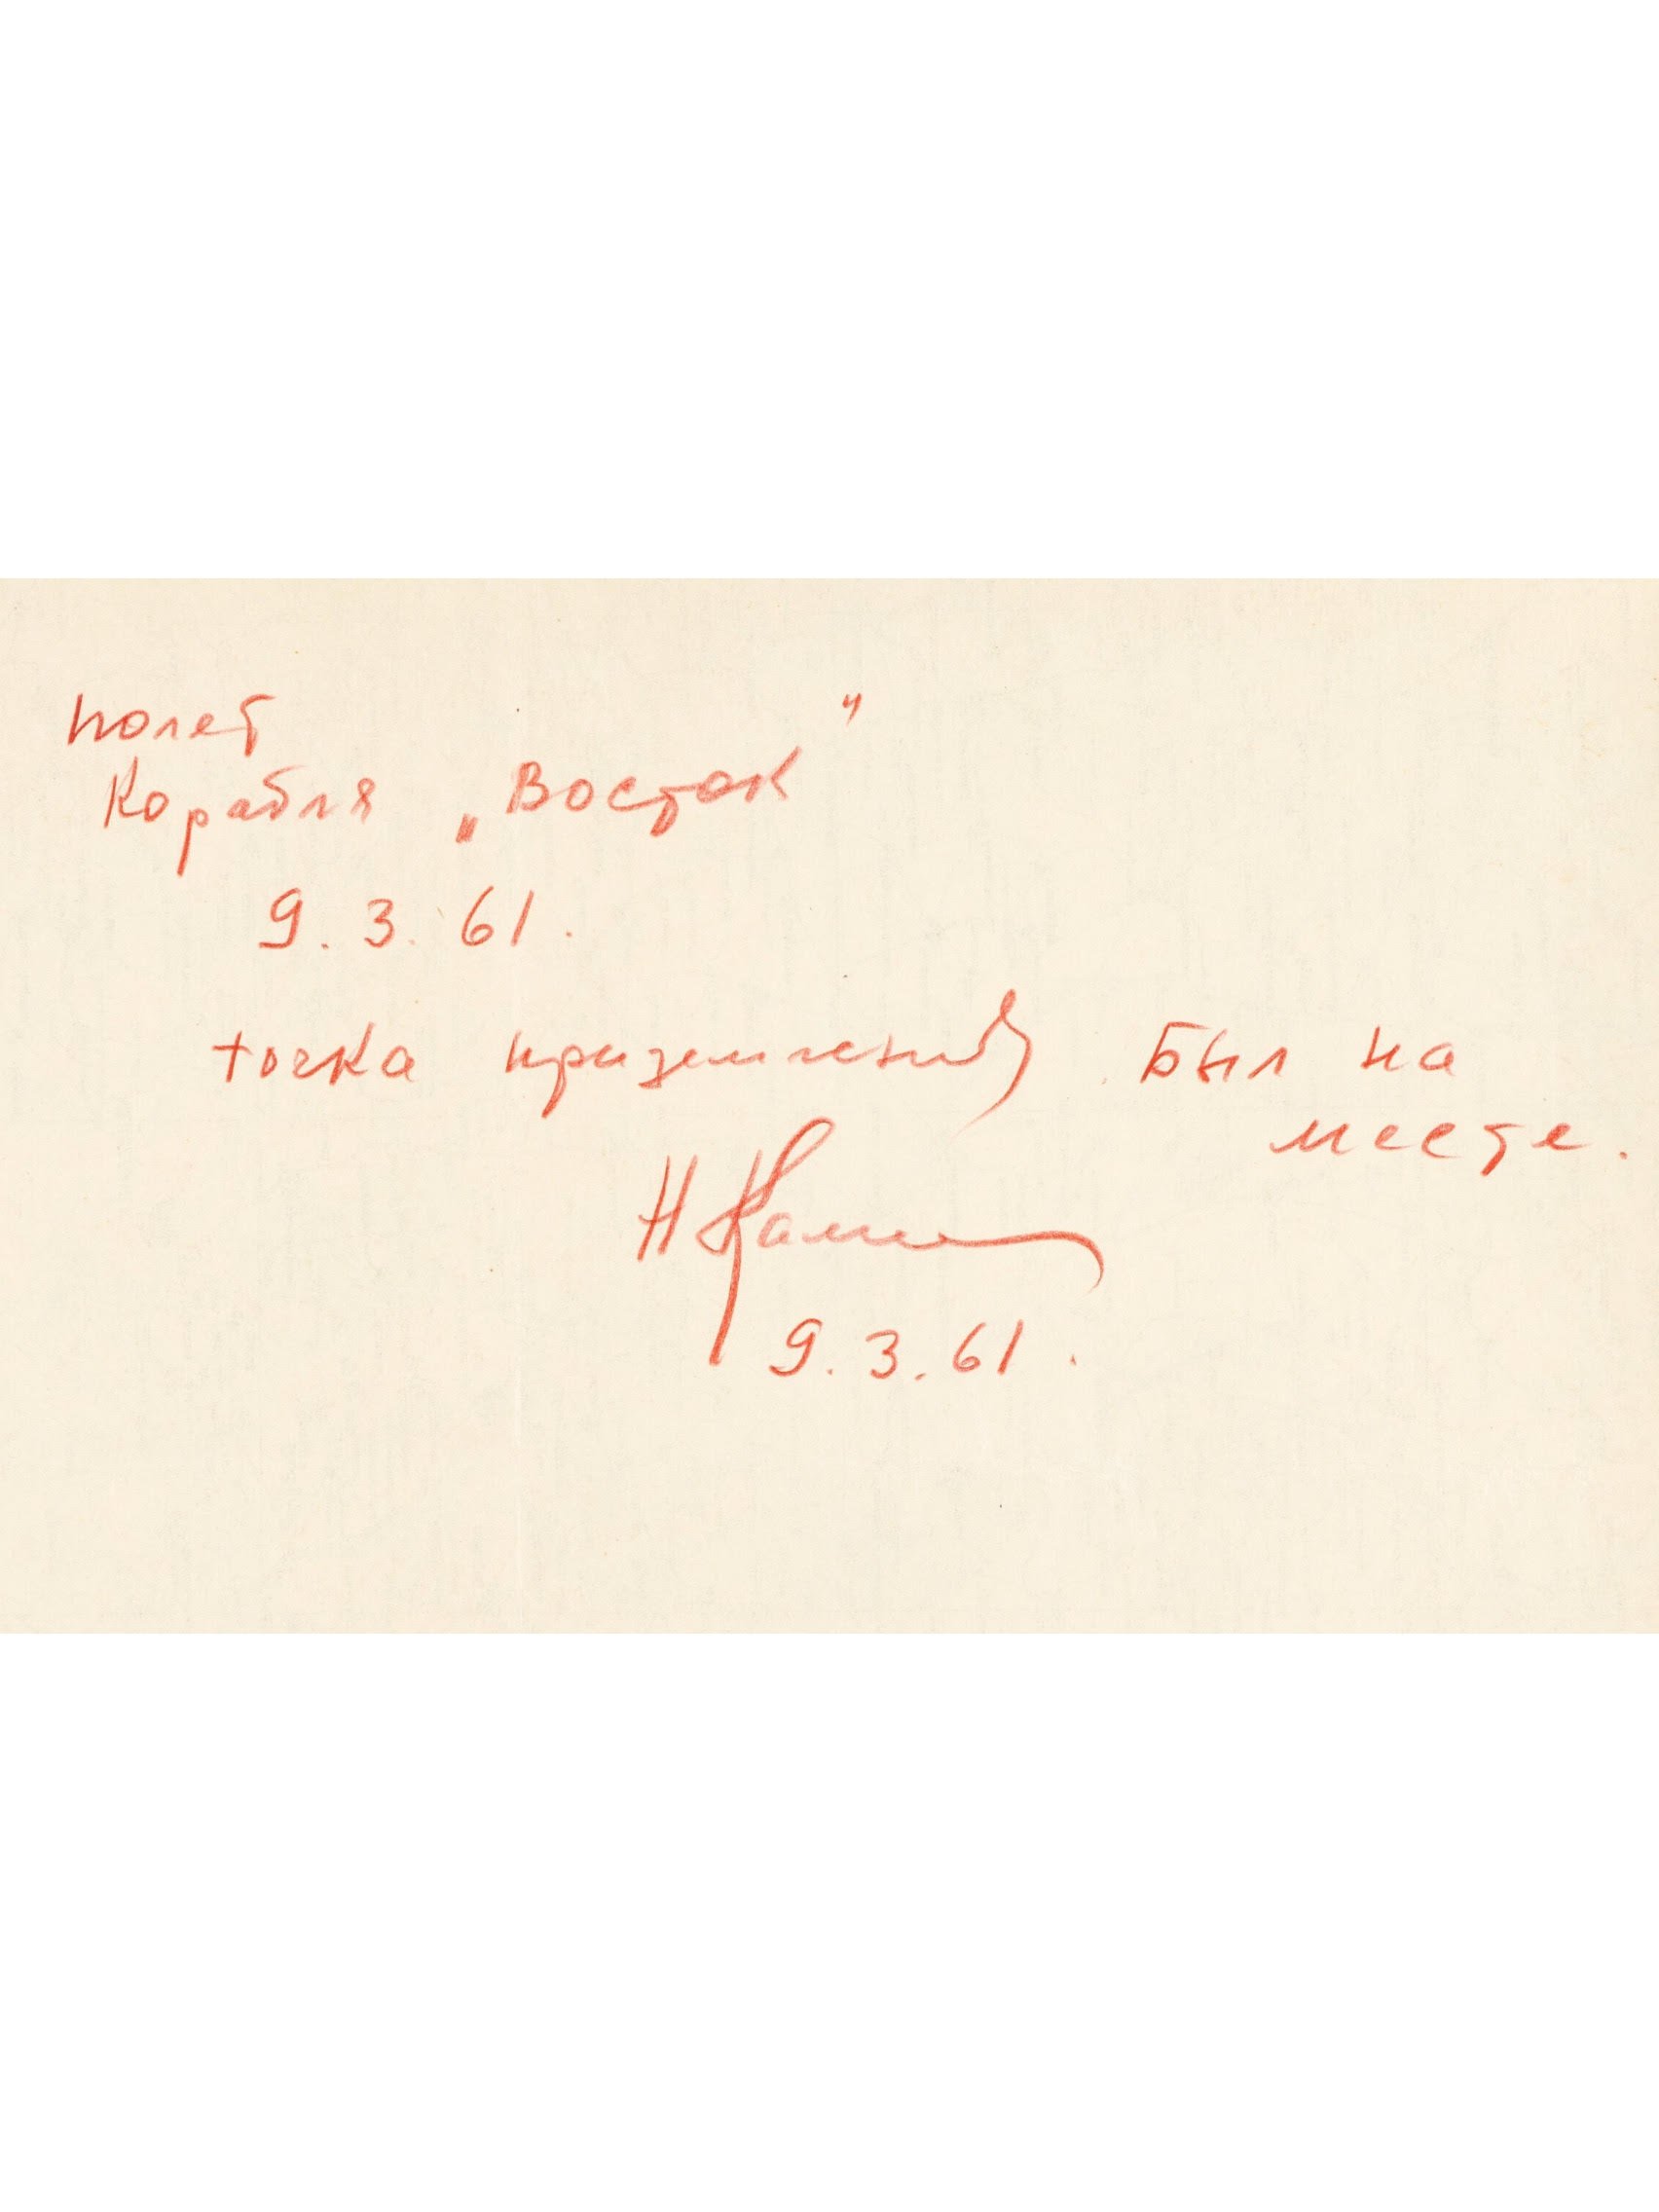 полет
корабля „Восток"
9.3.61.
точка приземления. Был на
месте.
Н Камани
9.3.61.